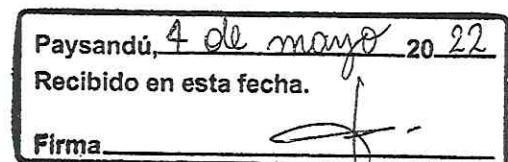 Paysandú, 4 de mayo 20 22
Recibido en esta fecha.
Firma